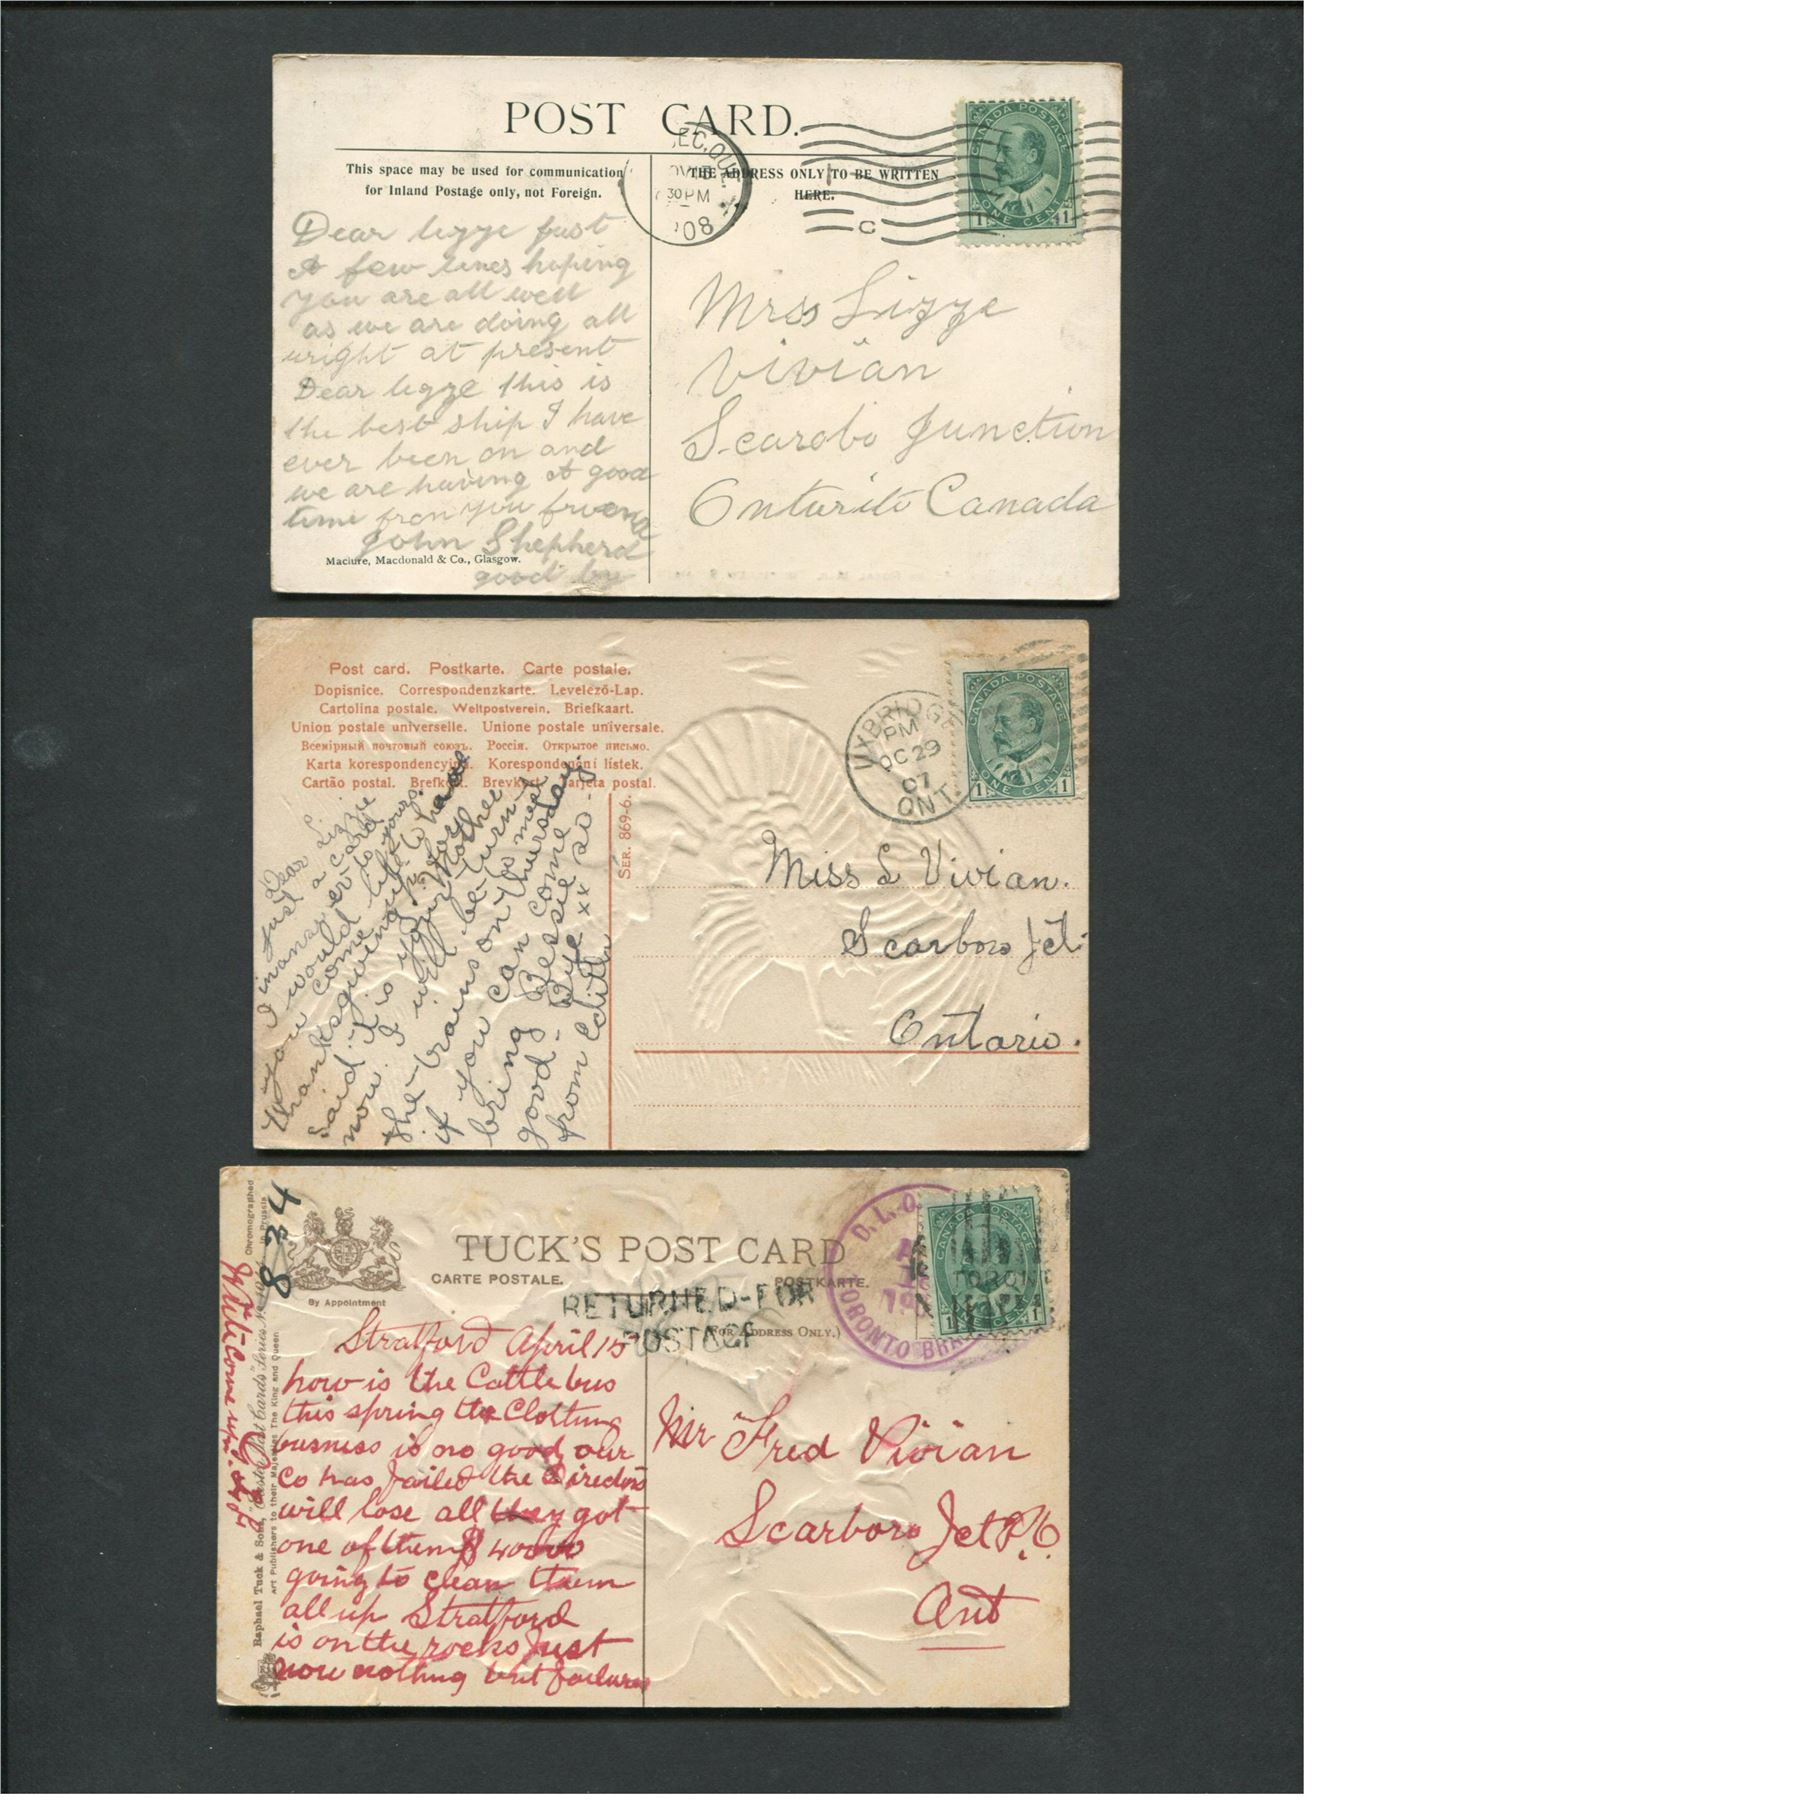 POST CARD.
This space may be used for communication
for Inland Postage only, not Foreign.
THE ADDRESS ONLY TO BE WRITTEN
HERE.
EC, QUE.
30 PM
'08
C
CANADA POSTAGE
1 ONE CENT 1
Dear lizze just
A few lines hoping
you are all well
as we are doing all
wright at present
Dear lizze this is
the best ship I have
ever been on and
we are having A good
time from you friend
John Shepherd
good by
Maclure, Macdonald & Co., Glasgow.
Mrss Lizze
Vivian
Scarobo Junction
Canada
Post card. Postkarte. Carte postale.
Dopisnice. Correspondenzkarte. Levelező-Lap.
Cartolina postale. Weltpostverein. Briefkaart.
Union postale universelle. Unione postale universale.
Всемірный почтовый союзъ. Россія. Открытое письмо.
Karta korespondencyjna. Korespondenční lístek.
Cartão postal. Brefkort. Brevkort. Tarjeta postal.
SER. 869-6.
UXBRIDGE
PM
OC 29
07
ONT.
CANADA POSTAGE
1 ONE CENT 1
Dear Lizzie
Just a card
in answer to yours.
I would like to have
you come up for
Thanksgiving
said it is your Mother
now. I will be-turn-
the-trains on Thursday
if you can come
bring Bessie so-
good-Bye xx
from Edith
Miss L Vivian.
Scarboro Jct.
Ontario.
TUCK'S POST CARD
CARTE POSTALE. POSTKARTE.
By Appointment
(FOR ADDRESS ONLY.)
RETURNED-FOR
POSTAGE
D.L.O.
TORONTO BRA
TORON
CANADA POSTAGE
1 ONE CENT 1
834
Chromographed
in Prussia
Raphael Tuck & Sons' "Easter" Post Cards Series No.
Art Publishers to their Majesties The King and Queen
Stratford April 15
how is the Cattle bus
this spring the Clothing
busness is no good our
Co has failed the Directors
will lose all they got
one of them $ 40000
going to clean them
all up Stratford
is on the rocks Just
now nothing but failures
Write Come up.
Mr Fred Vivian
Scarboro Jct P.O.
Ont